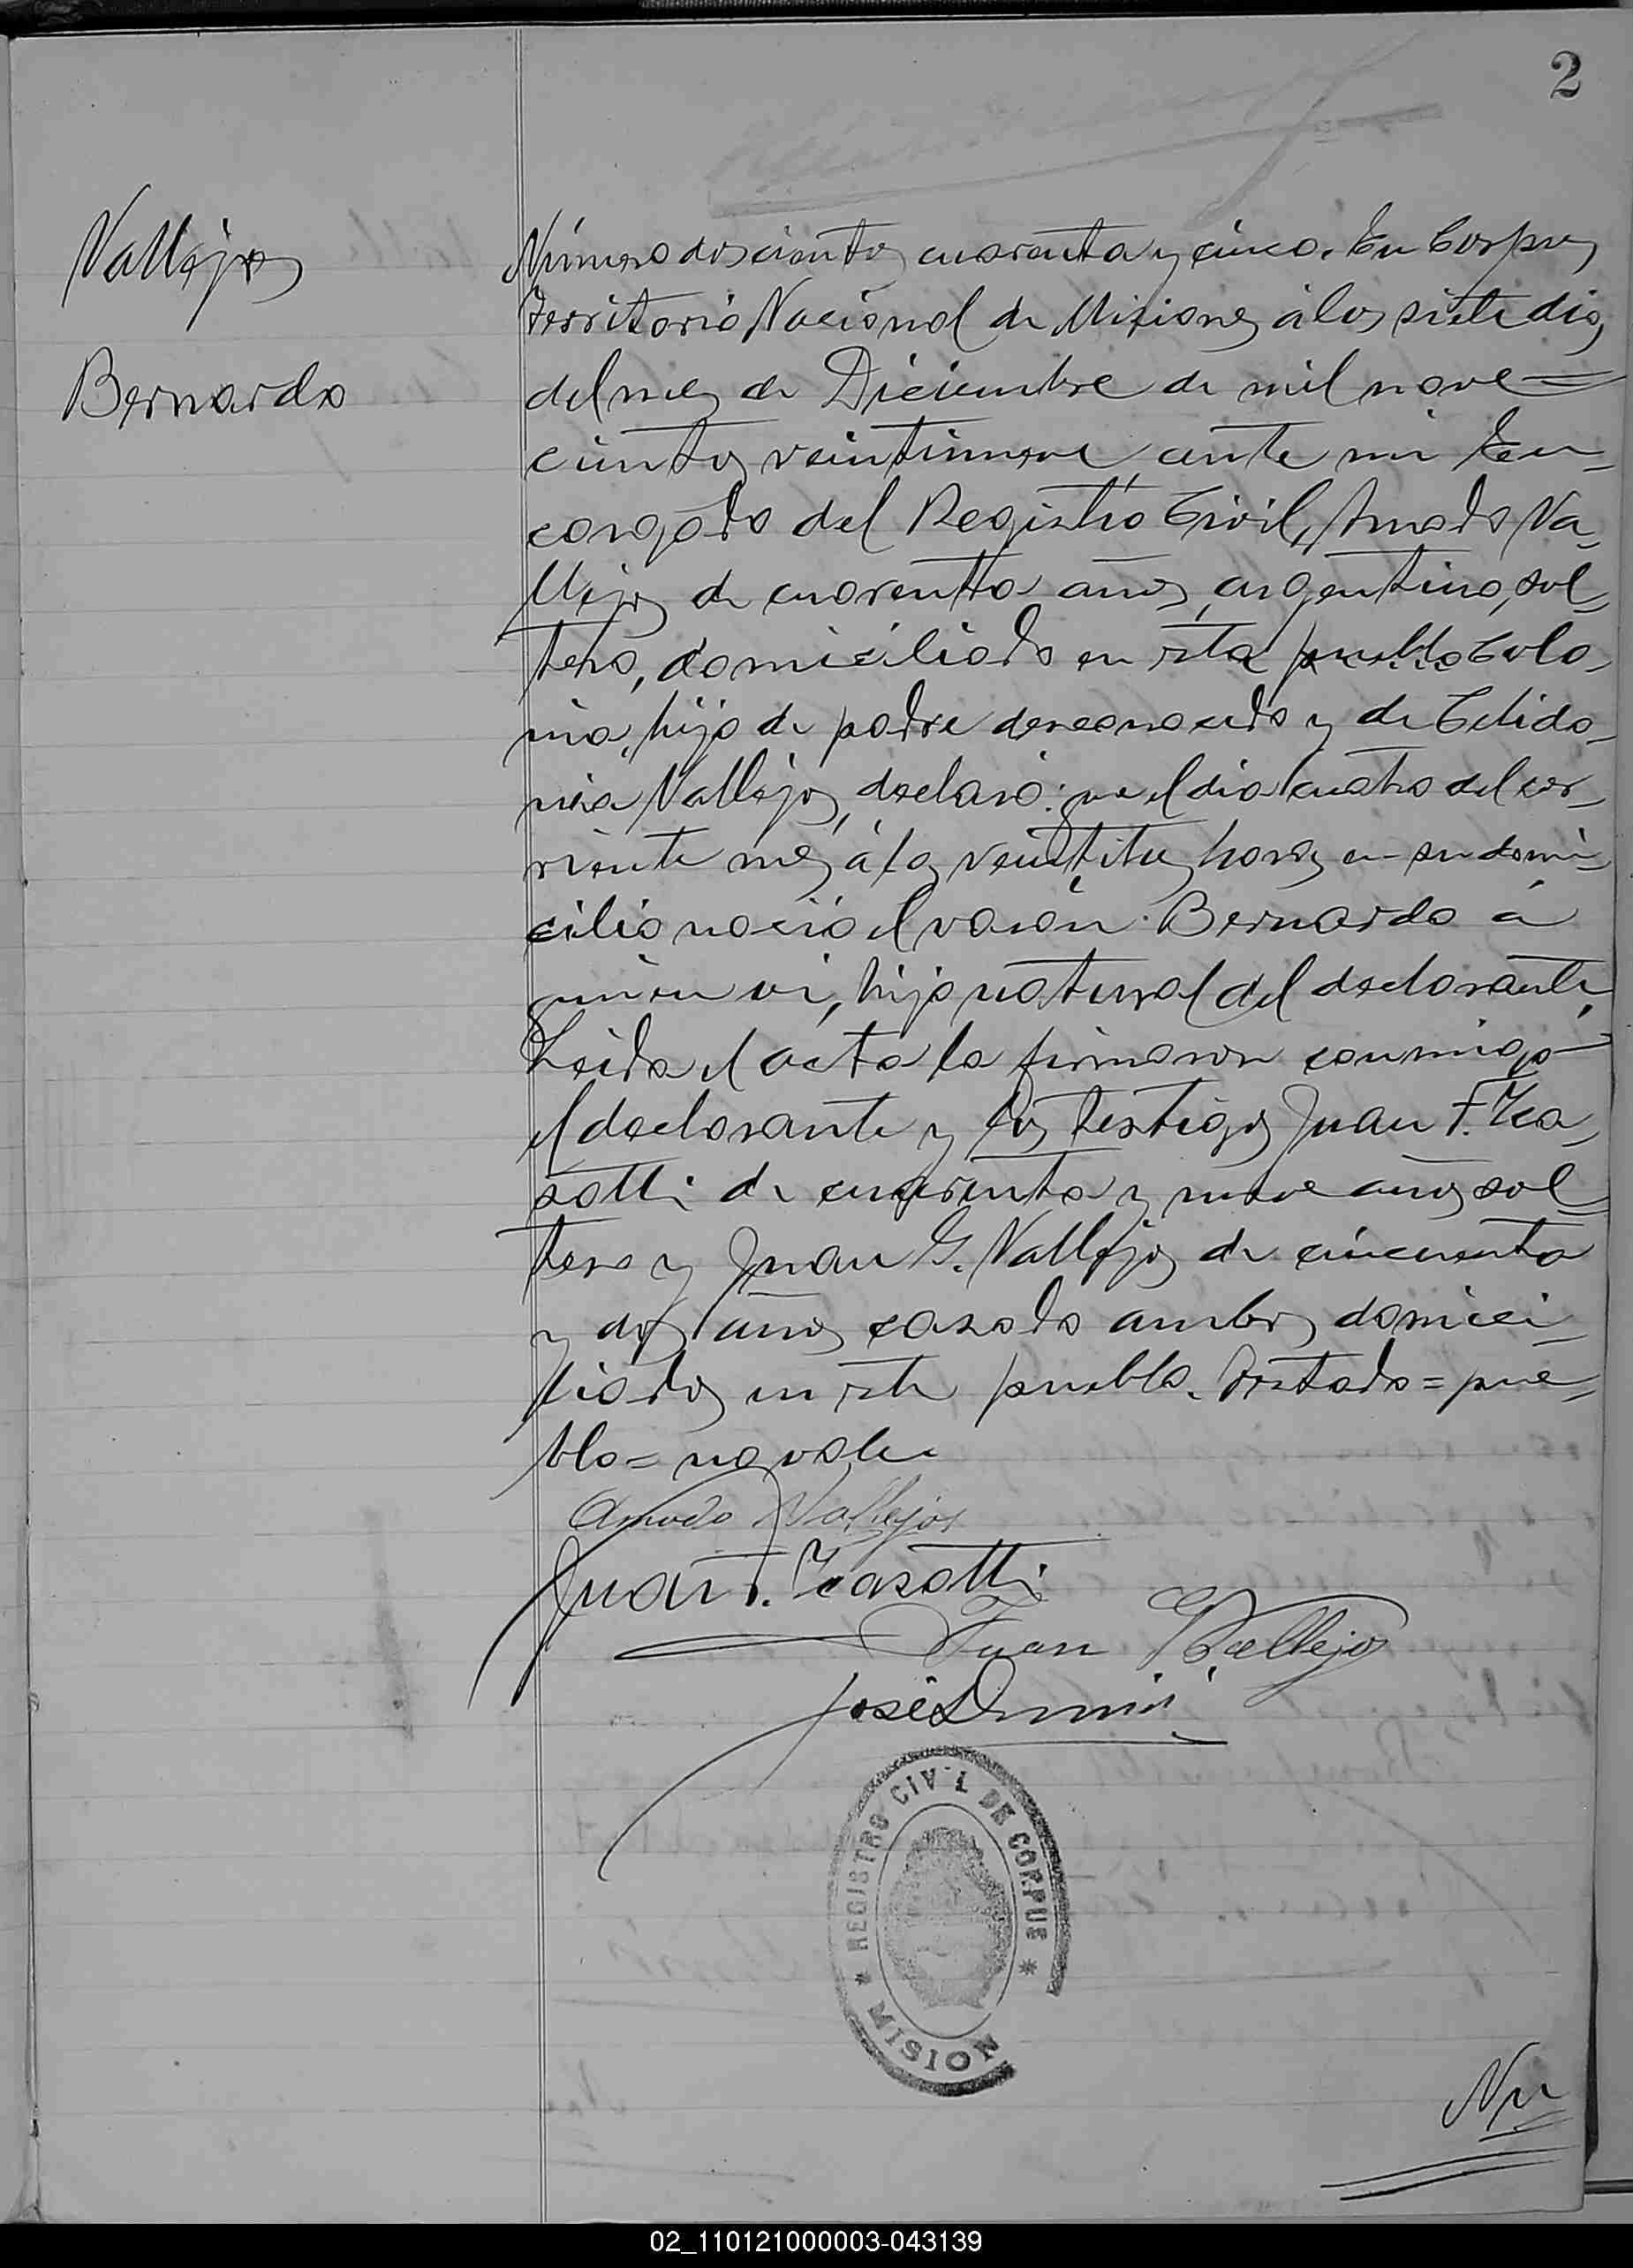 2
Vallejos
Bernardo
Número doscientos cuarenta y cinco. En Corpus,
Territorio Nacional de Misiones á los siete dias
del mes de Diciembre de mil nove=
cientos veintinueve ante mi En-
cargado del Registro Civil, Amado Va-
llejos de cuarenta años, argentino, sol-
tero, domiciliado en esta pueblo Colo-
nia, hijo de padre desconocido y de Celido-
nia Vallejos, declaró: que el dia cuatro del cor-
riente mes á las veintitres horas en su domi-
cilio nació el varon Bernardo á
quien vi, hijo natural del declarante.
Leida el acta la firmaron conmigo
el declarante y los testigos Juan F.
de cuarenta y nueve años sol-
tero y Juan G. Vallejos de cincuenta
y dos años casado ambos domici-
liados en este pueblo. Testado = pue-
blo = no vale
Amado Vallejos
Juan F.
Juan Vallejos
José
REGISTRO CIVIL DE CORPUS
MISION
Nú
02_110121000003-043139